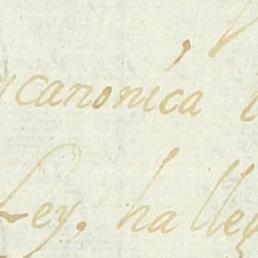 canonica
Ley, halle